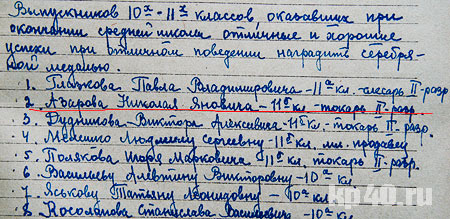 Выпускников 10х-11х классов, оказавших при
окончании средней школы отличные и хорошие
успехи при отличном поведении наградить серебря-
ной медалью.
1. Глазкова Павла Владимировича -11а кл. -слесарь II-разр
2. Азарова Николая Яновича -11б кл. -токарь II-разр
3. Дудникова Виктора Алексеевича -11б кл. -токарь II-разр.
4. Мелешко Людмилу Сергеевну -11б кл. мл. продавец
5. Полякова Игоря Марковича 11б кл. токарь II-разр.
6. Васильеву Алевтину Викторовну -10а кл.
7. Яськову Татьяну Леонидовну - 10а кл.
8. Росолапова Станислава Васильевич - 10а кл.
kp40.ru